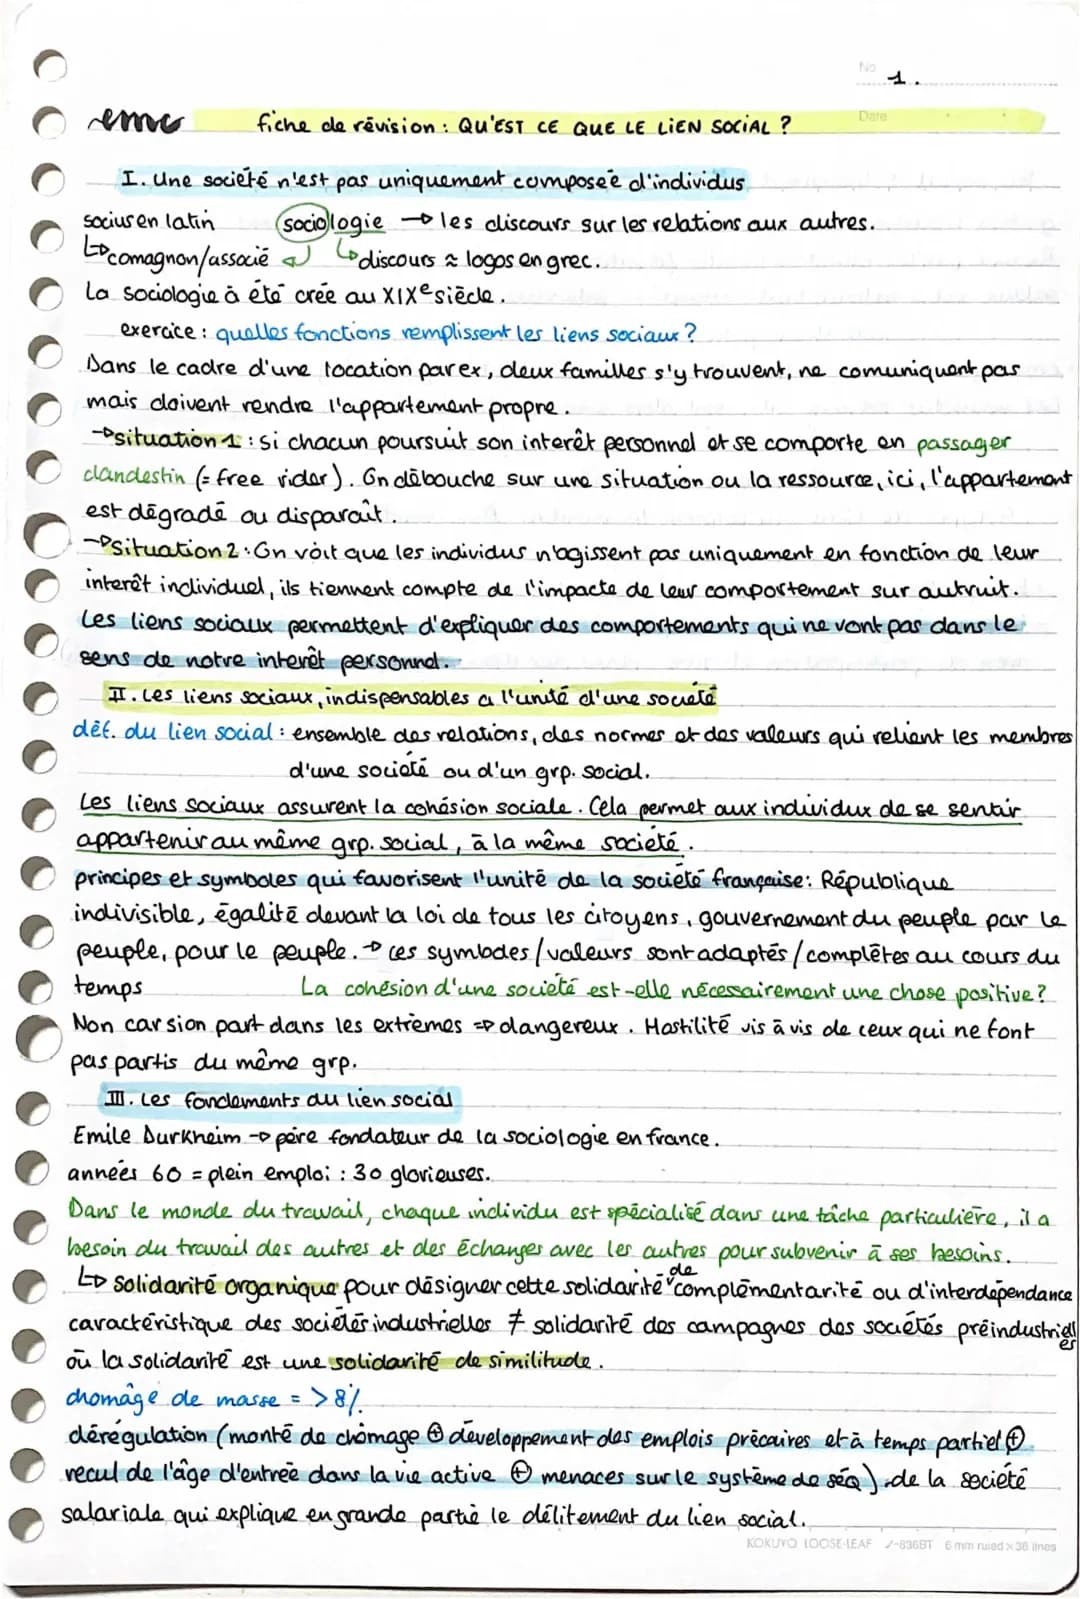 No 1.
Date
emc fiche de révision : QU'EST CE QUE LE LIEN SOCIAL ?
I. Une société n'est pas uniquement composée d'individus
socius en latin sociologie → les discours sur les relations aux autres.
↳ comagnon/associé ↲ ↳ discours ≈ logos en grec.
La sociologie à été crée au XIXe siècle.
exercice : quelles fonctions remplissent les liens sociaux ?
Dans le cadre d'une location par ex, deux familles s'y trouvent, ne comuniquent pas
mais doivent rendre l'appartement propre.
→ situation 1 : si chacun poursuit son interêt personnel et se comporte en passager
clandestin (= free rider). On débouche sur une situation ou la ressource, ici, l'appartement
est dégradé ou disparaît.
→ situation 2 : On voit que les individus n'agissent pas uniquement en fonction de leur
interêt individuel, ils tiennent compte de l'impacte de leur comportement sur autruit.
Les liens sociaux permettent d'expliquer des comportements qui ne vont pas dans le
sens de notre interêt personnel.
II. Les liens sociaux, indispensables a l'unité d'une société
déf. du lien social : ensemble des relations, des normes et des valeurs qui relient les membres
d'une société ou d'un grp. social.
Les liens sociaux assurent la cohésion sociale. Cela permet aux individux de se sentir
appartenir au même grp. social, à la même société.
principes et symboles qui favorisent l'unité de la société française : République
indivisible, égalité devant la loi de tous les citoyens, gouvernement du peuple par le
peuple, pour le peuple. → ces symboles/valeurs sont adaptés/complétes au cours du
temps La cohésion d'une société est-elle nécessairement une chose positive ?
Non car si on part dans les extrèmes ⇒ dangereux. Hostilité vis à vis de ceux qui ne font
pas partis du même grp.
III. Les fondements du lien social
Emile Durkheim → père fondateur de la sociologie en france.
années 60 = plein emploi : 30 glorieuses.
Dans le monde du travail, chaque individu est spécialisé dans une tâche particulière, il a
besoin du travail des autres et des échanges avec les autres pour subvenir à ses besoins.
↳ solidarité organique pour désigner cette solidarité de complémentarité ou d'interdépendance
caractéristique des sociétés industrielles ≠ solidarité des campagnes des sociétés préindustrielles
où la solidarité est une solidarité de similitude.
chomâge de masse = > 8%
dérégulation (monté de chômage ⊕ développement des emplois précaires et à temps partiel ⊕
recul de l'âge d'entrée dans la vie active ⊕ menaces sur le système de séq) de la société
salariale qui explique en grande partie le délitement du lien social.
KOKUYO LOOSE-LEAF ノ-836BT 6 mm ruled x 36 lines